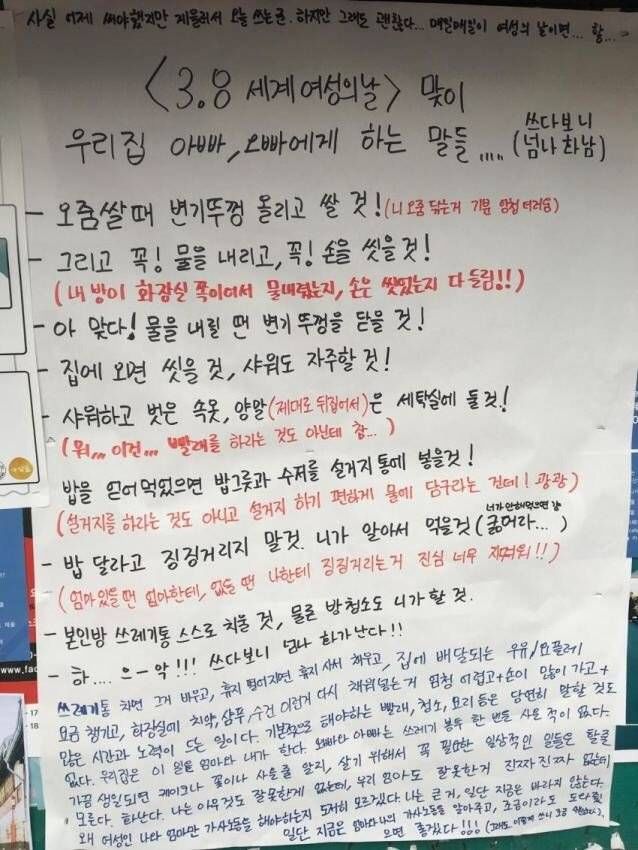 사실 어제 써야했지만 게을러서 오늘 쓰는군. 하지만 그래도 괜찮다... 매일매일이 여성의 날이면... 핳...
<3.8 세계여성의날> 맞이
우리집 아빠, 오빠에게 하는 말들.... (쓰다보니 넘나 화남)
- 오줌쌀때 변기뚜껑 올리고 쌀 것! (니 오줌 닦는거 기분 엄청 더러움)
- 그리고 꼭! 물을 내리고, 꼭! 손을 씻을 것!
(내 방이 화장실 쪽이어서 물내렸는지, 손은 씻었는지 다 들림!!)
- 아 맞다! 물을 내릴 땐 변기 뚜껑을 닫을 것!
- 집에 오면 씻을 것, 샤워도 자주할 것!
- 샤워하고 벗은 속옷, 양말(제대로 뒤집어서)은 세탁실에 둘 것!
(뭐,,, 이건,,, 빨래를 하라는 것도 아닌데 참...)
밥을 얻어먹었으면 밥그릇과 수저를 설거지통에 넣을것!
(설거지를 하라는 것도 아니고 설거지 하기 편하게 물에 담구라는 건데! 광광)
- 밥 달라고 징징거리지 말것. 니가 알아서 먹을것 (너가 안해먹으면 걍 굶어라...)
(엄마 있을땐 엄마한테, 없을 땐 나한테 징징거리는거 진심 너무 지겨워!!)
- 본인방 쓰레기통 스스로 치울 것, 물론 방청소도 니가 할 것.
- 하.... 으-악!!! 쓰다보니 넘나 화가난다!!
쓰레기통 차면 그거 비우고, 휴지 떨어지면 휴지 사서 채우고, 집에 배달되는 우유/요플레
요금 챙기고, 화장실에 치약, 샴푸, 수건 이런거 다시 채워넣는거 엄청 어렵고+손이 많이 가고+
많은 시간과 노력이 드는 일이다. 기본적으로 해야하는 빨래, 청소, 요리 등은 당연히 말할 것도
없다. 우리집은 이 일을 엄마와 내가 한다. 오빠와 아빠는 쓰레기 봉투 한 번을 사온 적이 없다.
가끔 생일되면 케이크나 꽃이나 사올줄 알지, 살기 위해서 꼭 필요한 일상적인 일들은 할줄
모른다. 화난다. 나는 아무것도 잘못한게 없는데, 우리 엄마도 잘못한거 진짜진짜 없는데
왜 여성인 나와 엄마만 가사노동을 해야하는지 도저히 모르겠다. 나는 큰 거, 일단 지금은 바라지 않는다.
일단 지금은 엄마와 나의 가사노동을 알아주고, 조금이라도 도와줬
으면 좋겠다!!!